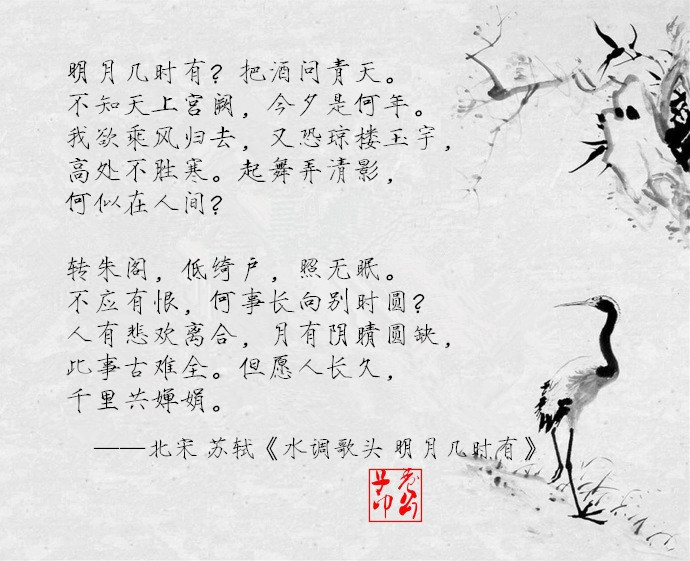 明月几时有？把酒问青天。
不知天上宫阙，今夕是何年。
我欲乘风归去，又恐琼楼玉宇，
高处不胜寒。起舞弄清影，
何似在人间？
转朱阁，低绮户，照无眠。
不应有恨，何事长向别时圆？
人有悲欢离合，月有阴晴圆缺，
此事古难全。但愿人长久，
千里共婵娟。
——北宋 苏轼《水调歌头 明月几时有》